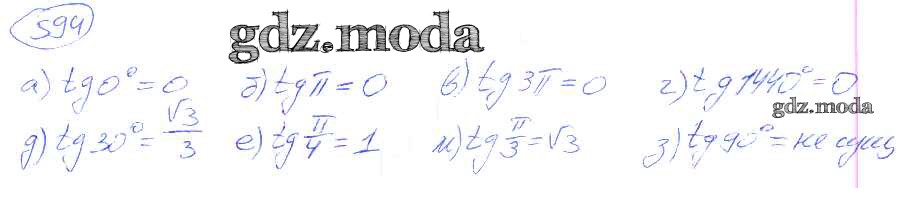 594
gdz.moda
а) tg 0° = 0 б) tg π = 0 в) tg 3π = 0 г) tg 1440° = 0
gdz.moda
д) tg 30° = √3/3 е) tg π/4 = 1 и) tg π/3 = √3 з) tg 90° = не сущ